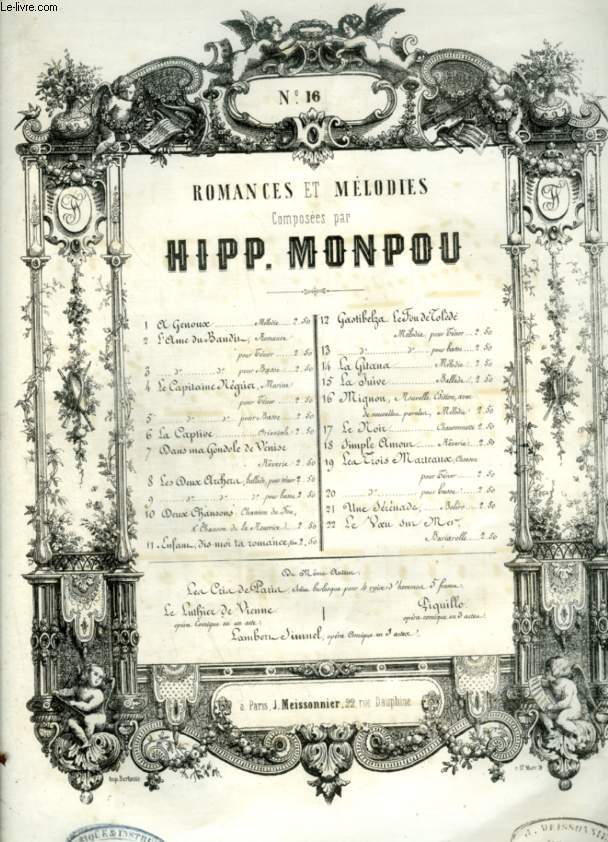 Le-livre.com
N.º 16
ROMANCES ET MÉLODIES
Composées par
HIPP. MONPOU
1 A Genoux Mélodie 2.50
2 L'Ame du Bandit, Romance
pour Ténor 2.50
3 d.º d.º pour Basse 2.50
4 Le Capitaine Négrier, Marine
pour Ténor 2.50
5 d.º d.º pour Basse 2.50
6 La Captive Orientale 2.50
7 Dans ma Gondole de Vénise
Rêverie 2.50
8 Les Deux Archers, ballade, pour ténor 2.50
9 d.º d.º d.º pour basse 2.50
10 Deux Chansons Chanson de Fou,
& Chanson de la Nourrice 2.50
11 Enfant, dis-moi ta romance, 2.50
12 Gastibelza Le Fou de Tolède
Mélodie pour Ténor 2.50
13 d.º d.º pour basse 2.50
14 La Gitana Mélodie 2.50
15 La Juive Ballade 2.50
16 Mignon, Nouvelle Edition, avec
de nouvelles paroles, Mélodie 2.50
17 Le Noir Chansonnette 2.50
18 Simple Amour Rêverie 2.50
19 Les Trois Marteaux, Chanson
pour Ténor 2.50
20 d.º pour basse 2.50
21 Une Sérénade, Boléro 2.50
22 Le Vœu sur Mer,
Barcarolle 2.50
Du Même Auteur:
Les Cris de Paris, scène burlesque pour 4 voix d'hommes 5 francs
Le Luthier de Vienne
opéra Comique en un acte
Piquillo
opéra comique en 3 actes
Lambert Simnel, opéra Comique en 3 actes
à Paris, J. Meissonnier, 22, rue Dauphine
Imp. Bertauts
J. MEISSONNIER